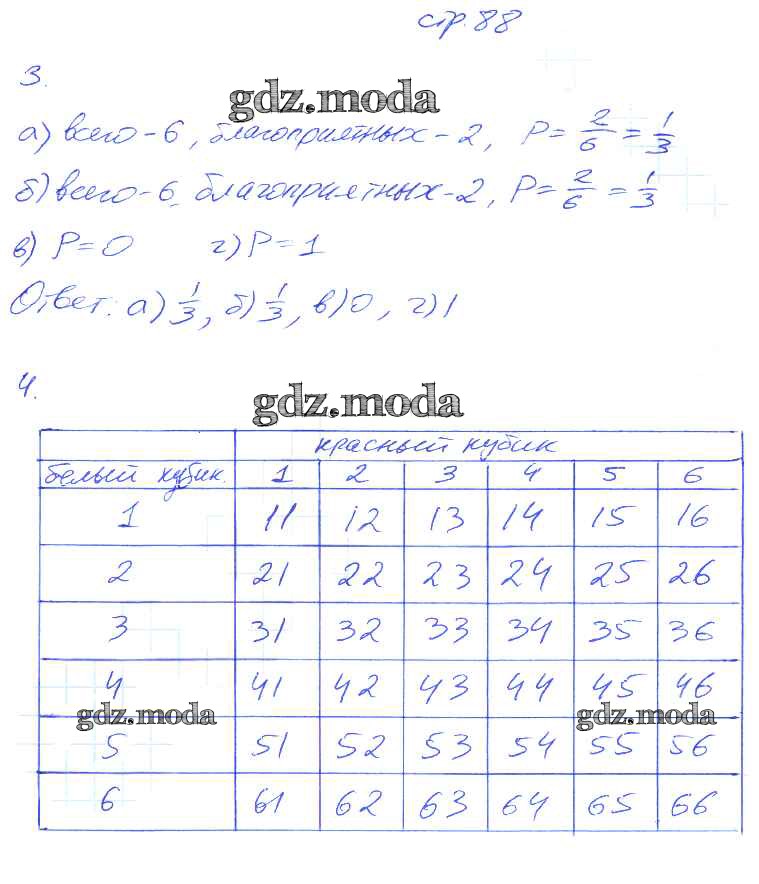 стр. 88
3.
gdz.moda
а) всего - 6, благоприятных - 2, P = 2/6 = 1/3
б) всего - 6, благоприятных - 2, P = 2/6 = 1/3
в) P = 0 г) P = 1
Ответ: а) 1/3, б) 1/3, в) 0, г) 1
4.
gdz.moda
красный кубик
белый кубик. 1 2 3 4 5 6
1 11 12 13 14 15 16
2 21 22 23 24 25 26
3 31 32 33 34 35 36
4 41 42 43 44 45 46
gdz.moda gdz.moda
5 51 52 53 54 55 56
6 61 62 63 64 65 66